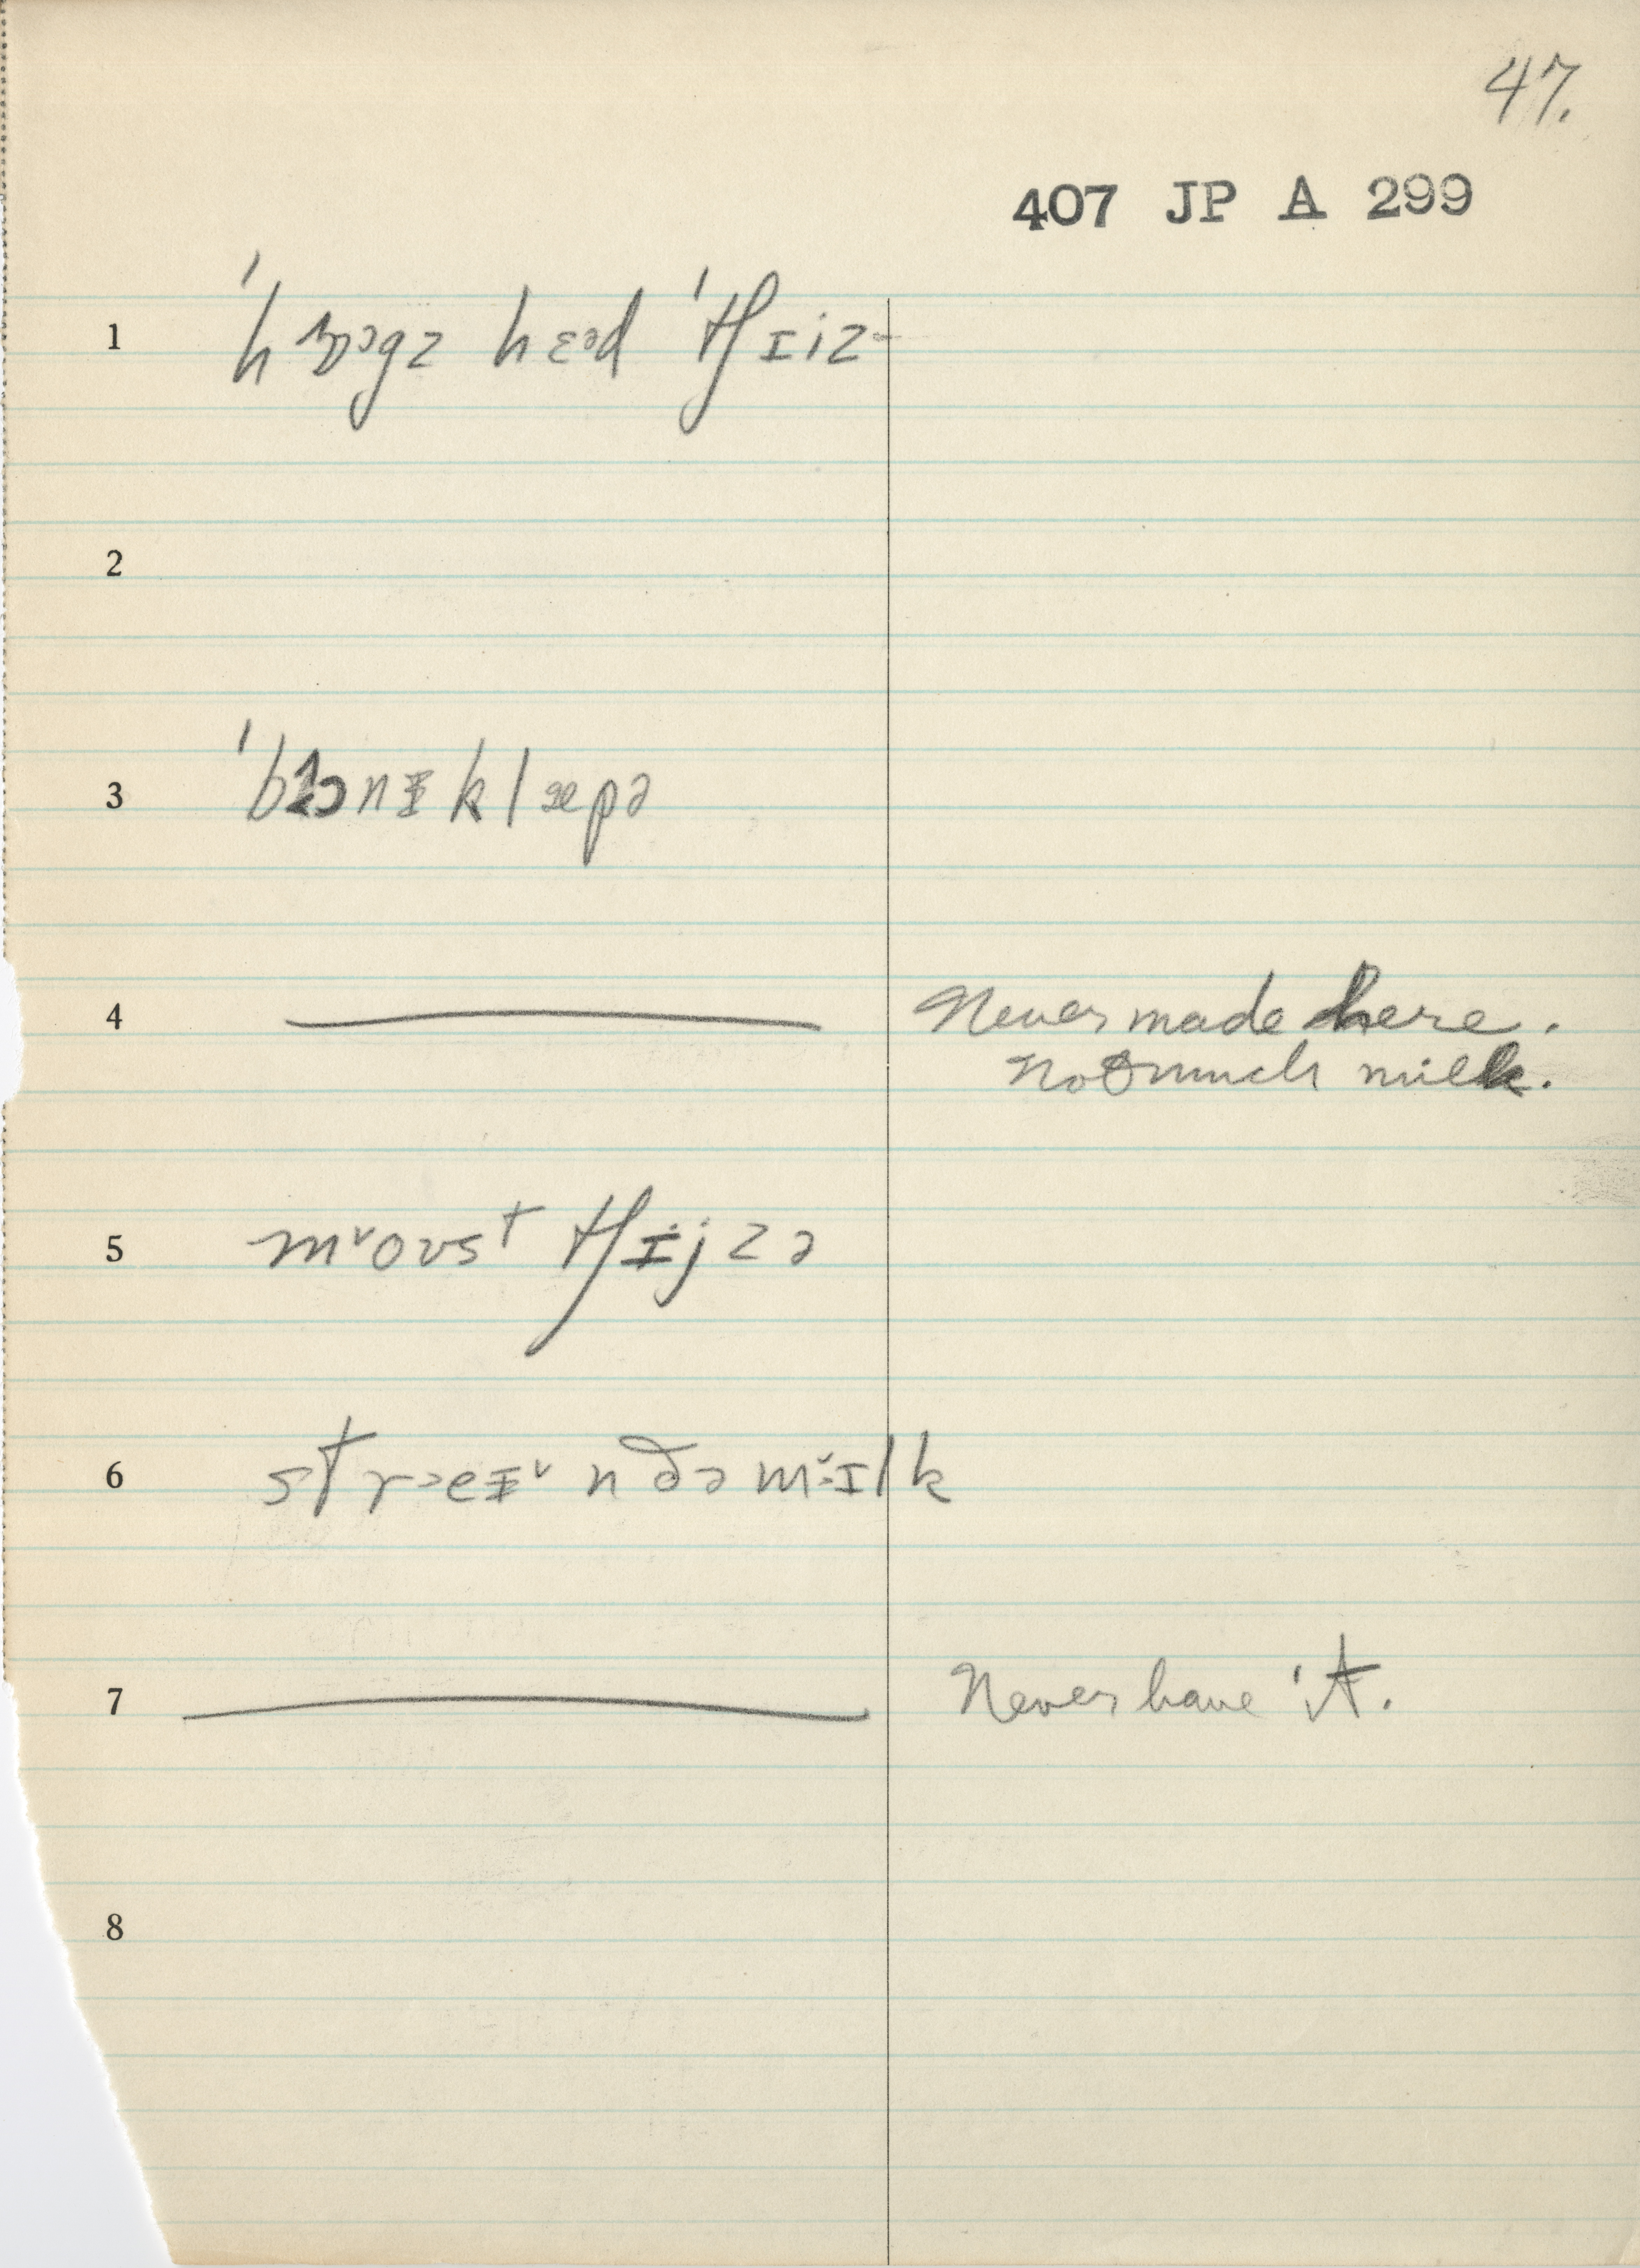 47.
407 JP A 299
1 hɛəd ˈtʃɪiz
2
3 ˈbɔnɪklæpə
4 Never made here.
Not much milk.
5 mˇoʊst tʃɪjzə
6 streɪˇn ðə mˇɪlk
7 Never have it.
8